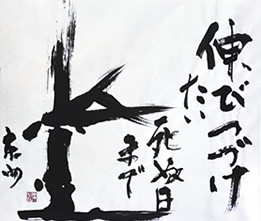 伸びつづけ
たい
死ぬ日
まで